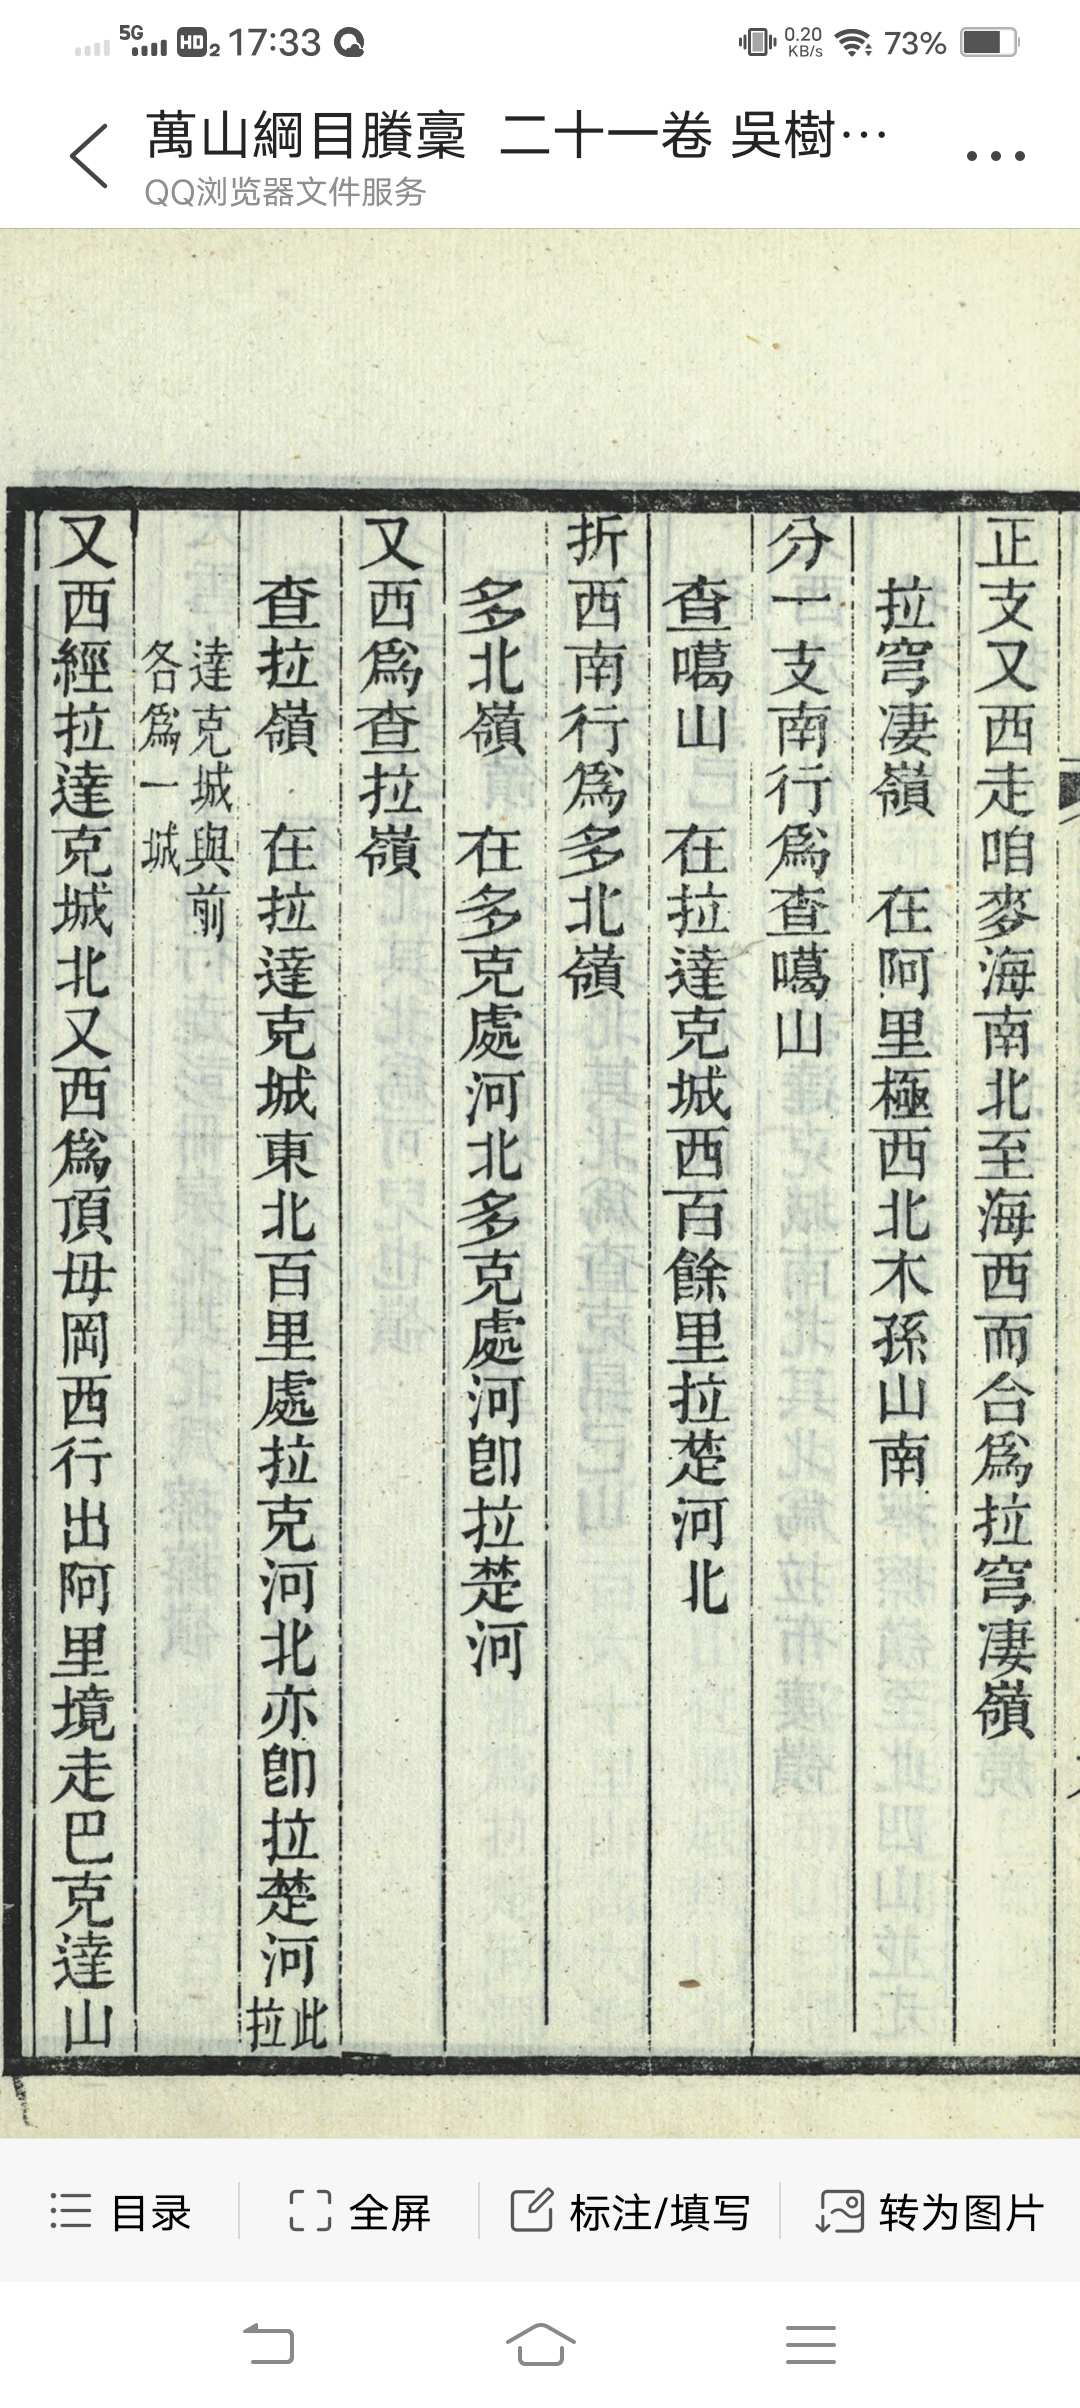 5G HD 2 17:33 0.20 KB/s 73%
萬山綱目賸稾 二十一卷 吳樹…
QQ浏览器文件服务
正支又西走咱麥海南北至海西而合爲拉穹凄嶺
拉穹凄嶺 在阿里極西北木孫山南
分一支南行爲查噶山
查噶山 在拉達克城西百餘里拉楚河北
折西南行爲多北嶺
多北嶺 在多克處河北多克處河卽拉楚河
又西爲查拉嶺
查拉嶺 在拉達克城東北百里處拉克河北亦卽拉楚河此拉
達克城與前各爲一城
又西經拉達克城北又西爲頂毋岡西行出阿里境走巴克達山
目录 全屏 标注/填写 转为图片